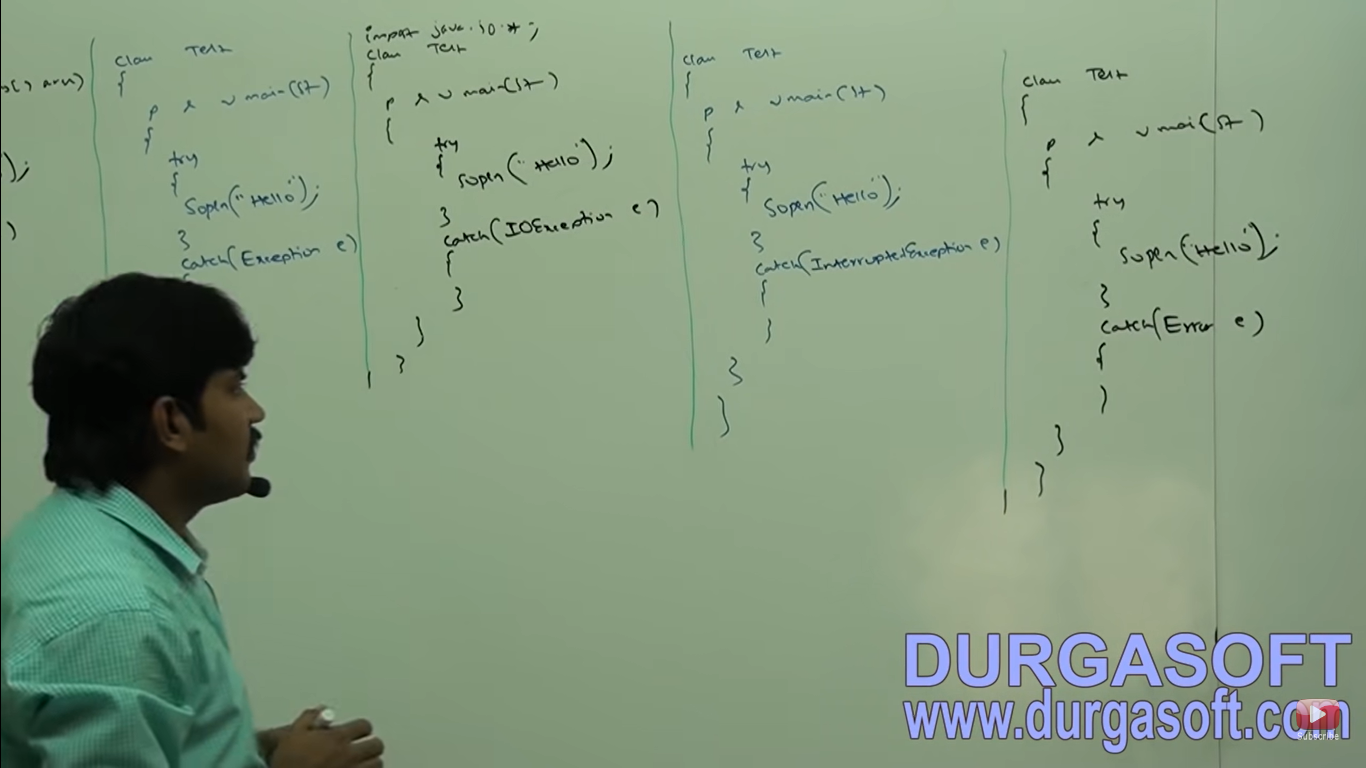 ) arn)
);
)
class Test
{
p s v main(St)
{
try
{
Sopln("Hello");
}
catch(Exception e)
{
import java.io.*;
class Test
{
p s v main(St)
{
try
{
Sopln("Hello");
}
catch(IOException e)
{
}
}
}
class Test
{
p s v main(St)
{
try
{
Sopln("Hello");
}
catch(InterruptedException e)
{
}
}
}
class Test
{
p s v mai(St)
{
try
{
Sopln("Hello");
}
catch(Error e)
{
}
}
}
DURGASOFT
www.durgasoft.com
Subscribe